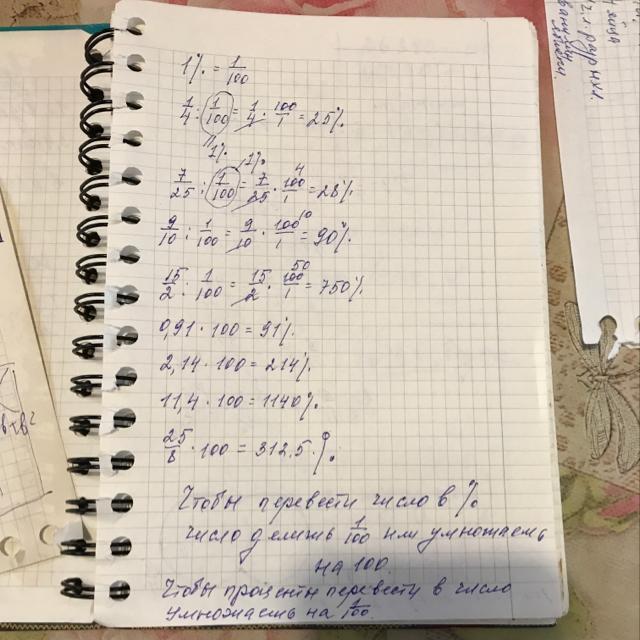 1% = 1/100
1/4 : 1/100 = 1/4 · 100/1 = 25%
1% 1%
7/25 : 1/100 = 7/25 · 100/1 4 = 28%
9/10 : 1/100 = 9/10 · 100/1 10 = 90%
15/2 : 1/100 = 15/2 · 100/1 50 = 750%
0,91 · 100 = 91%
2,14 · 100 = 214%
11,4 · 100 = 1140%
25/8 · 100 = 312.5 %
Чтобы перевести число в %
число делишь 1/100 или умножаешь
на 100.
Чтобы проценты перевести в число
умножаешь на 1/100.